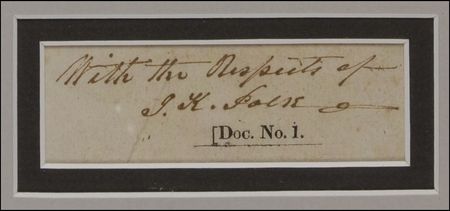 With the Respects of
J. K. Polk
[Doc. No. 1.